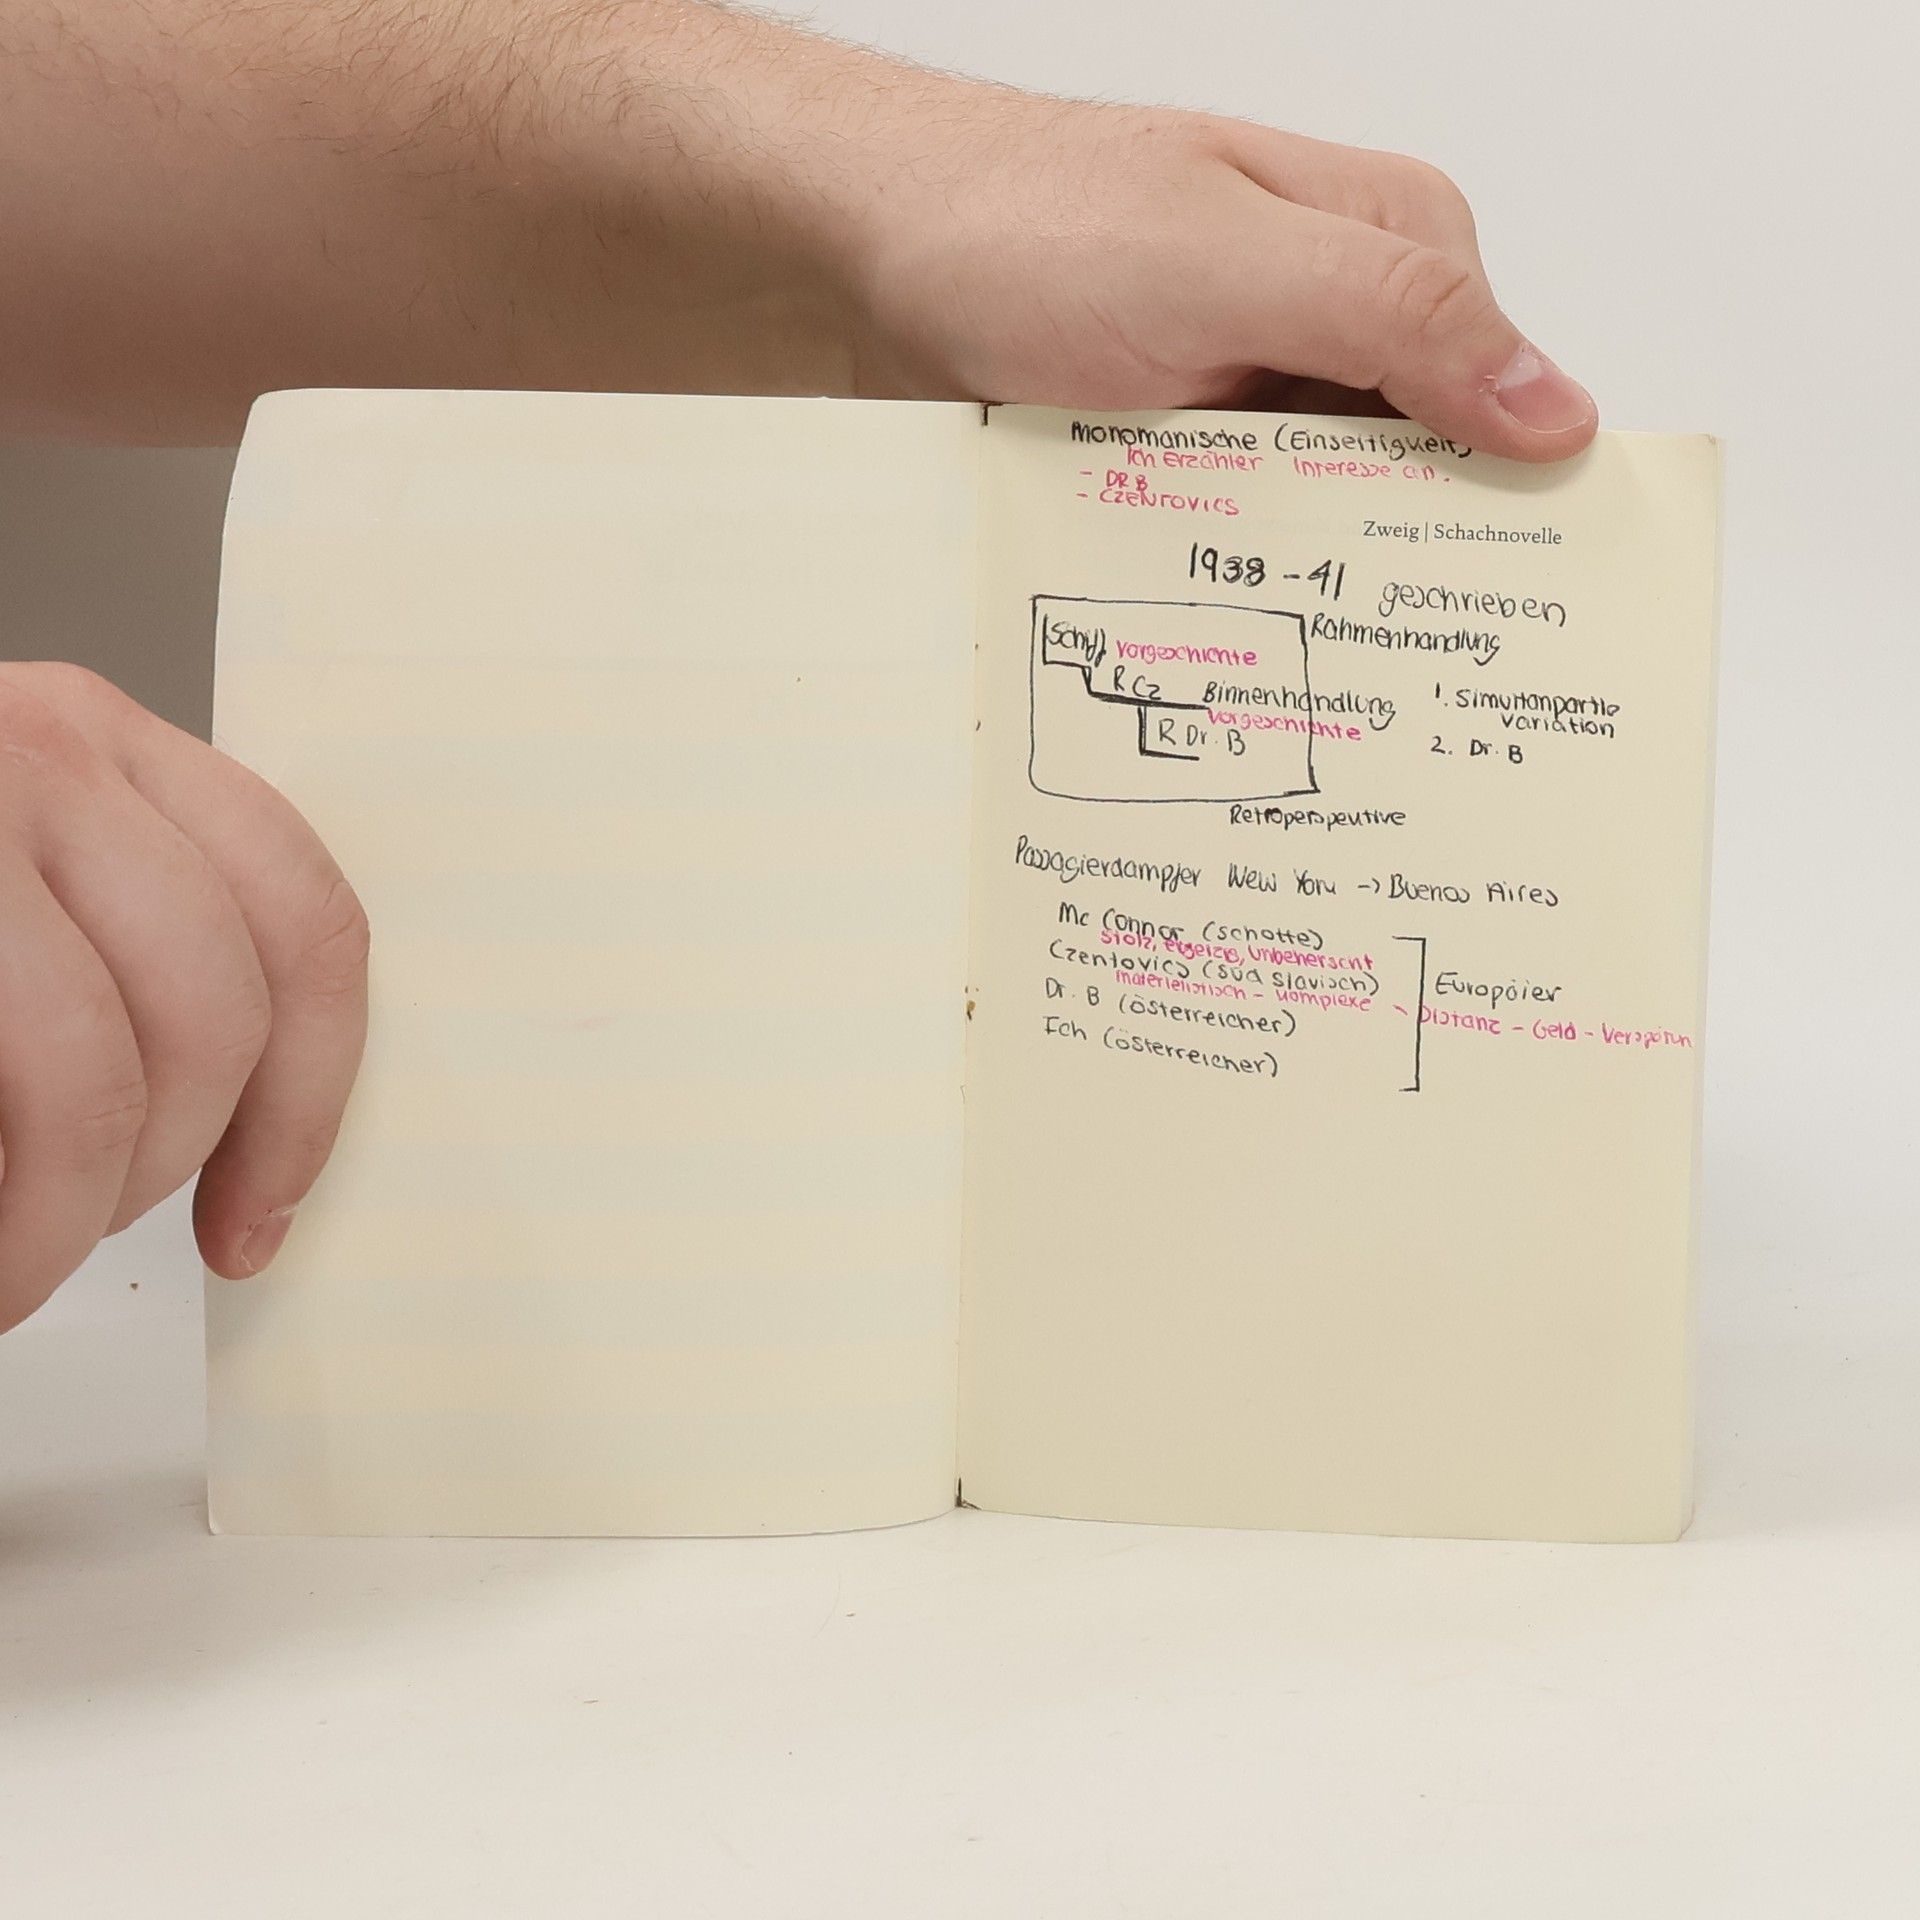 Monomanische (Einseitigkeit)
Ich erzähler Interesse an.
- DR B
- CZENTOVICS
Zweig | Schachnovelle
1938 - 41 geschrieben
Rahmenhandlung
(Schiff) vorgeschichte
R Cz Binnenhandlung
vorgeschichte
R Dr. B
1. Simultanpartie
variation
2. Dr. B
Retroperspektive
Passagierdampfer New York -> Buenos Aires
Mc Connor (Schotte)
Stolz, ergeizig, Unbeherscht
Czentovics (Süd Slavisch)
materielistisch - Komplexe - Distanz - Geld -
Dr. B (österreicher)
Ich (österreicher)
Europäier